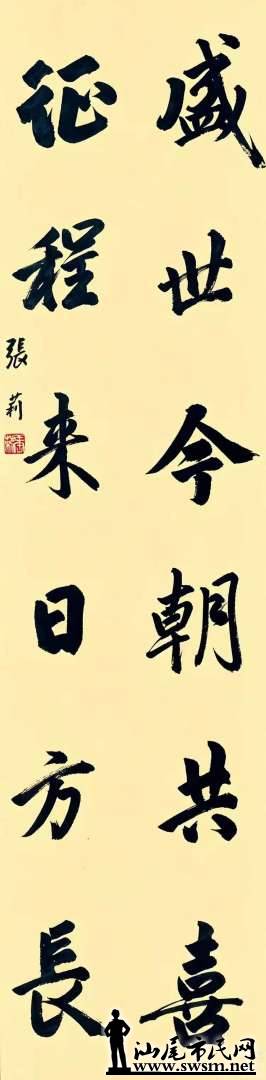 盛世今朝共喜
征程来日方長
張莉
汕尾市民网
www.swsm.net